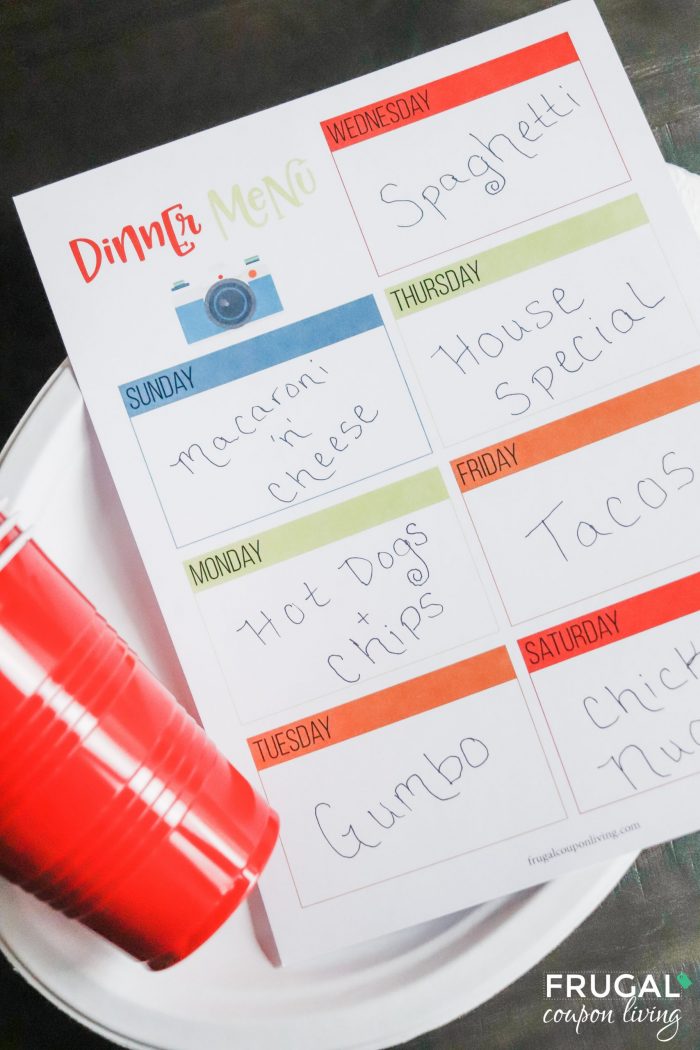 Dinner Menu
SUNDAY
Macaroni
'n'
cheese
MONDAY
Hot Dogs
+
Chips
TUESDAY
Gumbo
WEDNESDAY
Spaghetti
THURSDAY
House
Special
FRIDAY
Tacos
SATURDAY
frugalcouponliving.com
FRUGAL
coupon living